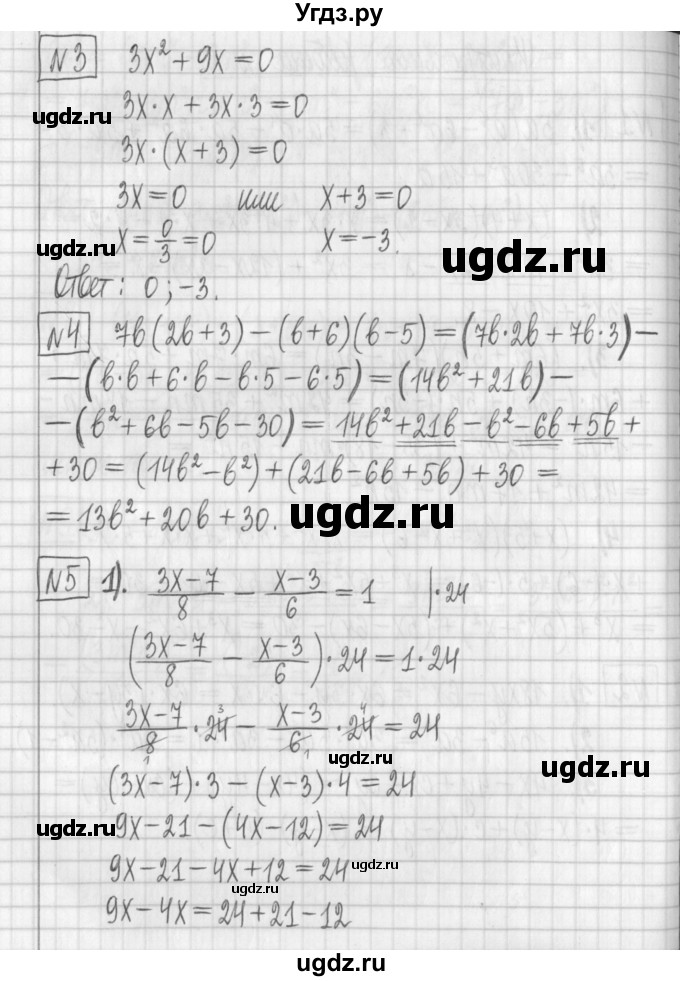 Угдз.ру
№3 3x² + 9x = 0
3x·x + 3x·3 = 0
ugdz.ru
3x·(x+3) = 0
3x = 0 или x+3 = 0
ugdz.ru
x = 0/3 = 0 x = -3.
ugdz.ru
Ответ: 0; -3.
№4 7b(2b+3) - (b+6)(b-5) = (7b·2b + 7b·3) -
- (b·b + 6·b - b·5 - 6·5) = (14b² + 21b) -
- (b² + 6b - 5b - 30) = 14b² + 21b - b² - 6b + 5b +
+ 30 = (14b² - b²) + (21b - 6b + 5b) + 30 =
= 13b² + 20b + 30.
ugdz.ru
№5 1). (3x-7)/8 - (x-3)/6 = 1 |·24
((3x-7)/8 - (x-3)/6)·24 = 1·24
(3x-7)/8 1 ·24 3 - (x-3)/6 1 ·24 4 = 24
ugdz.ru
ugdz.ru
(3x-7)·3 - (x-3)·4 = 24
ugdz.ru
9x - 21 - (4x - 12) = 24
9x - 21 - 4x + 12 = 24
ugdz.ru
ugdz.ru
9x - 4x = 24 + 21 - 12
ugdz.ru